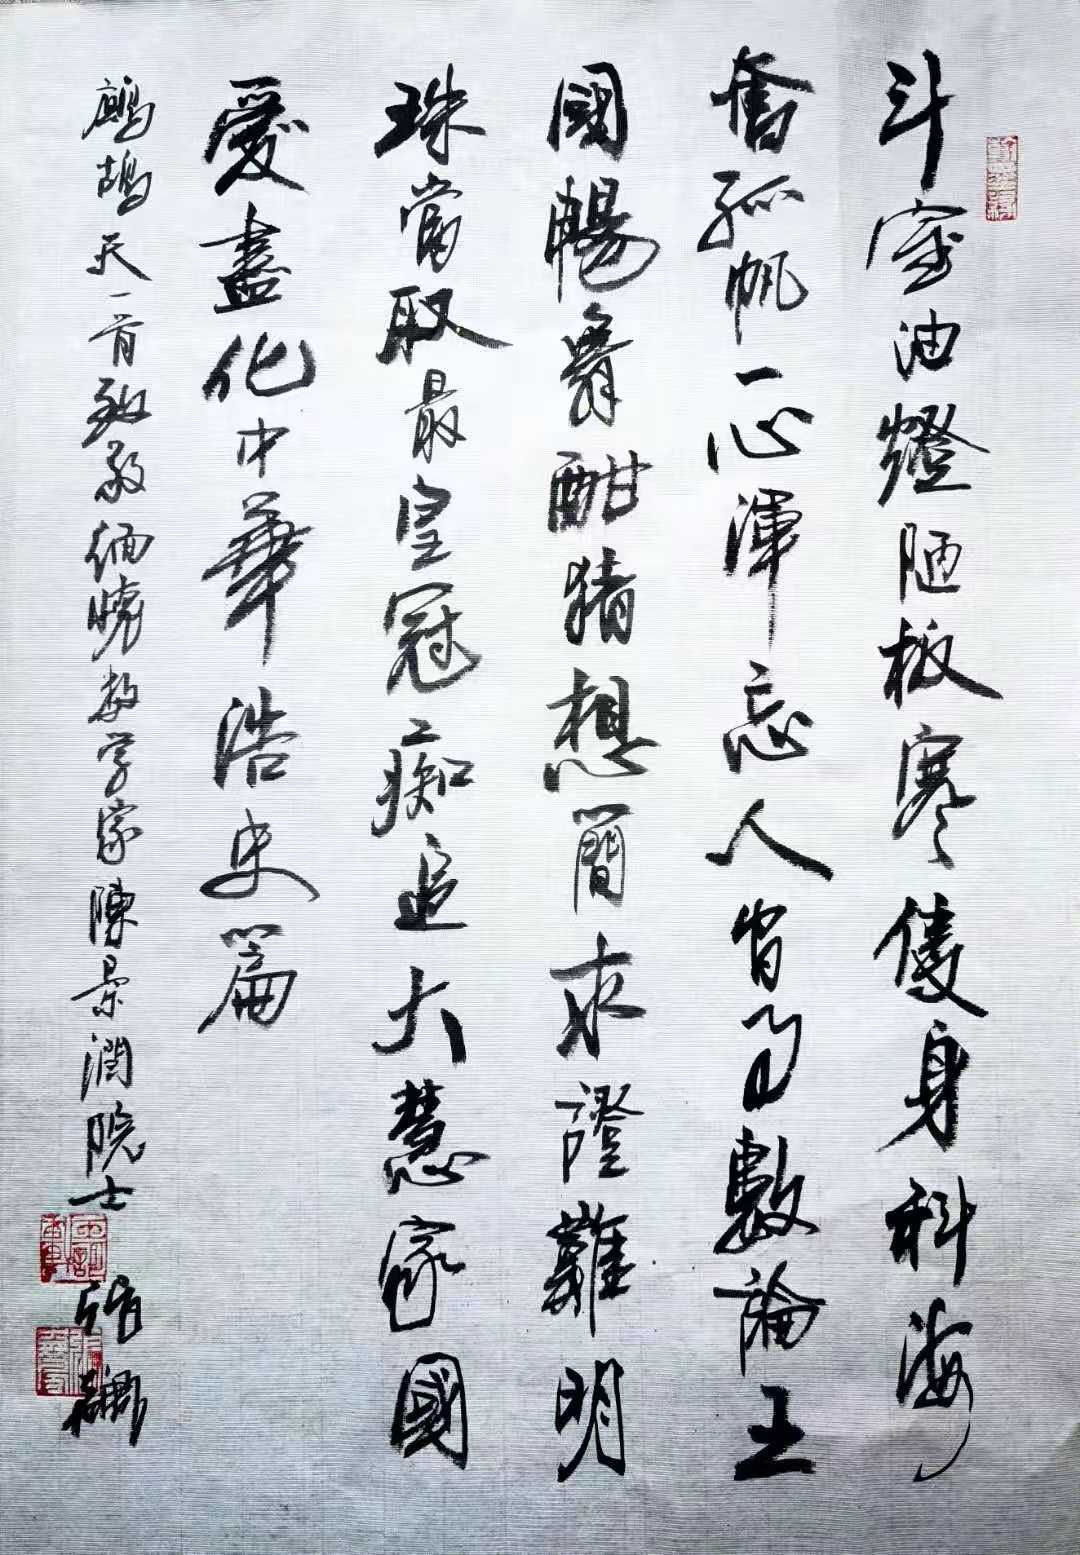 斗室油燈陋板寒隻身科海
奮孤帆一心渾忘人間事數論王
國暢爵酣猜想簡求證難明
珠當取最皇冠痴追大慧家國
愛盡化中華浩史篇
鷓鴣天一首致敬緬懷数学家陳景潤院士